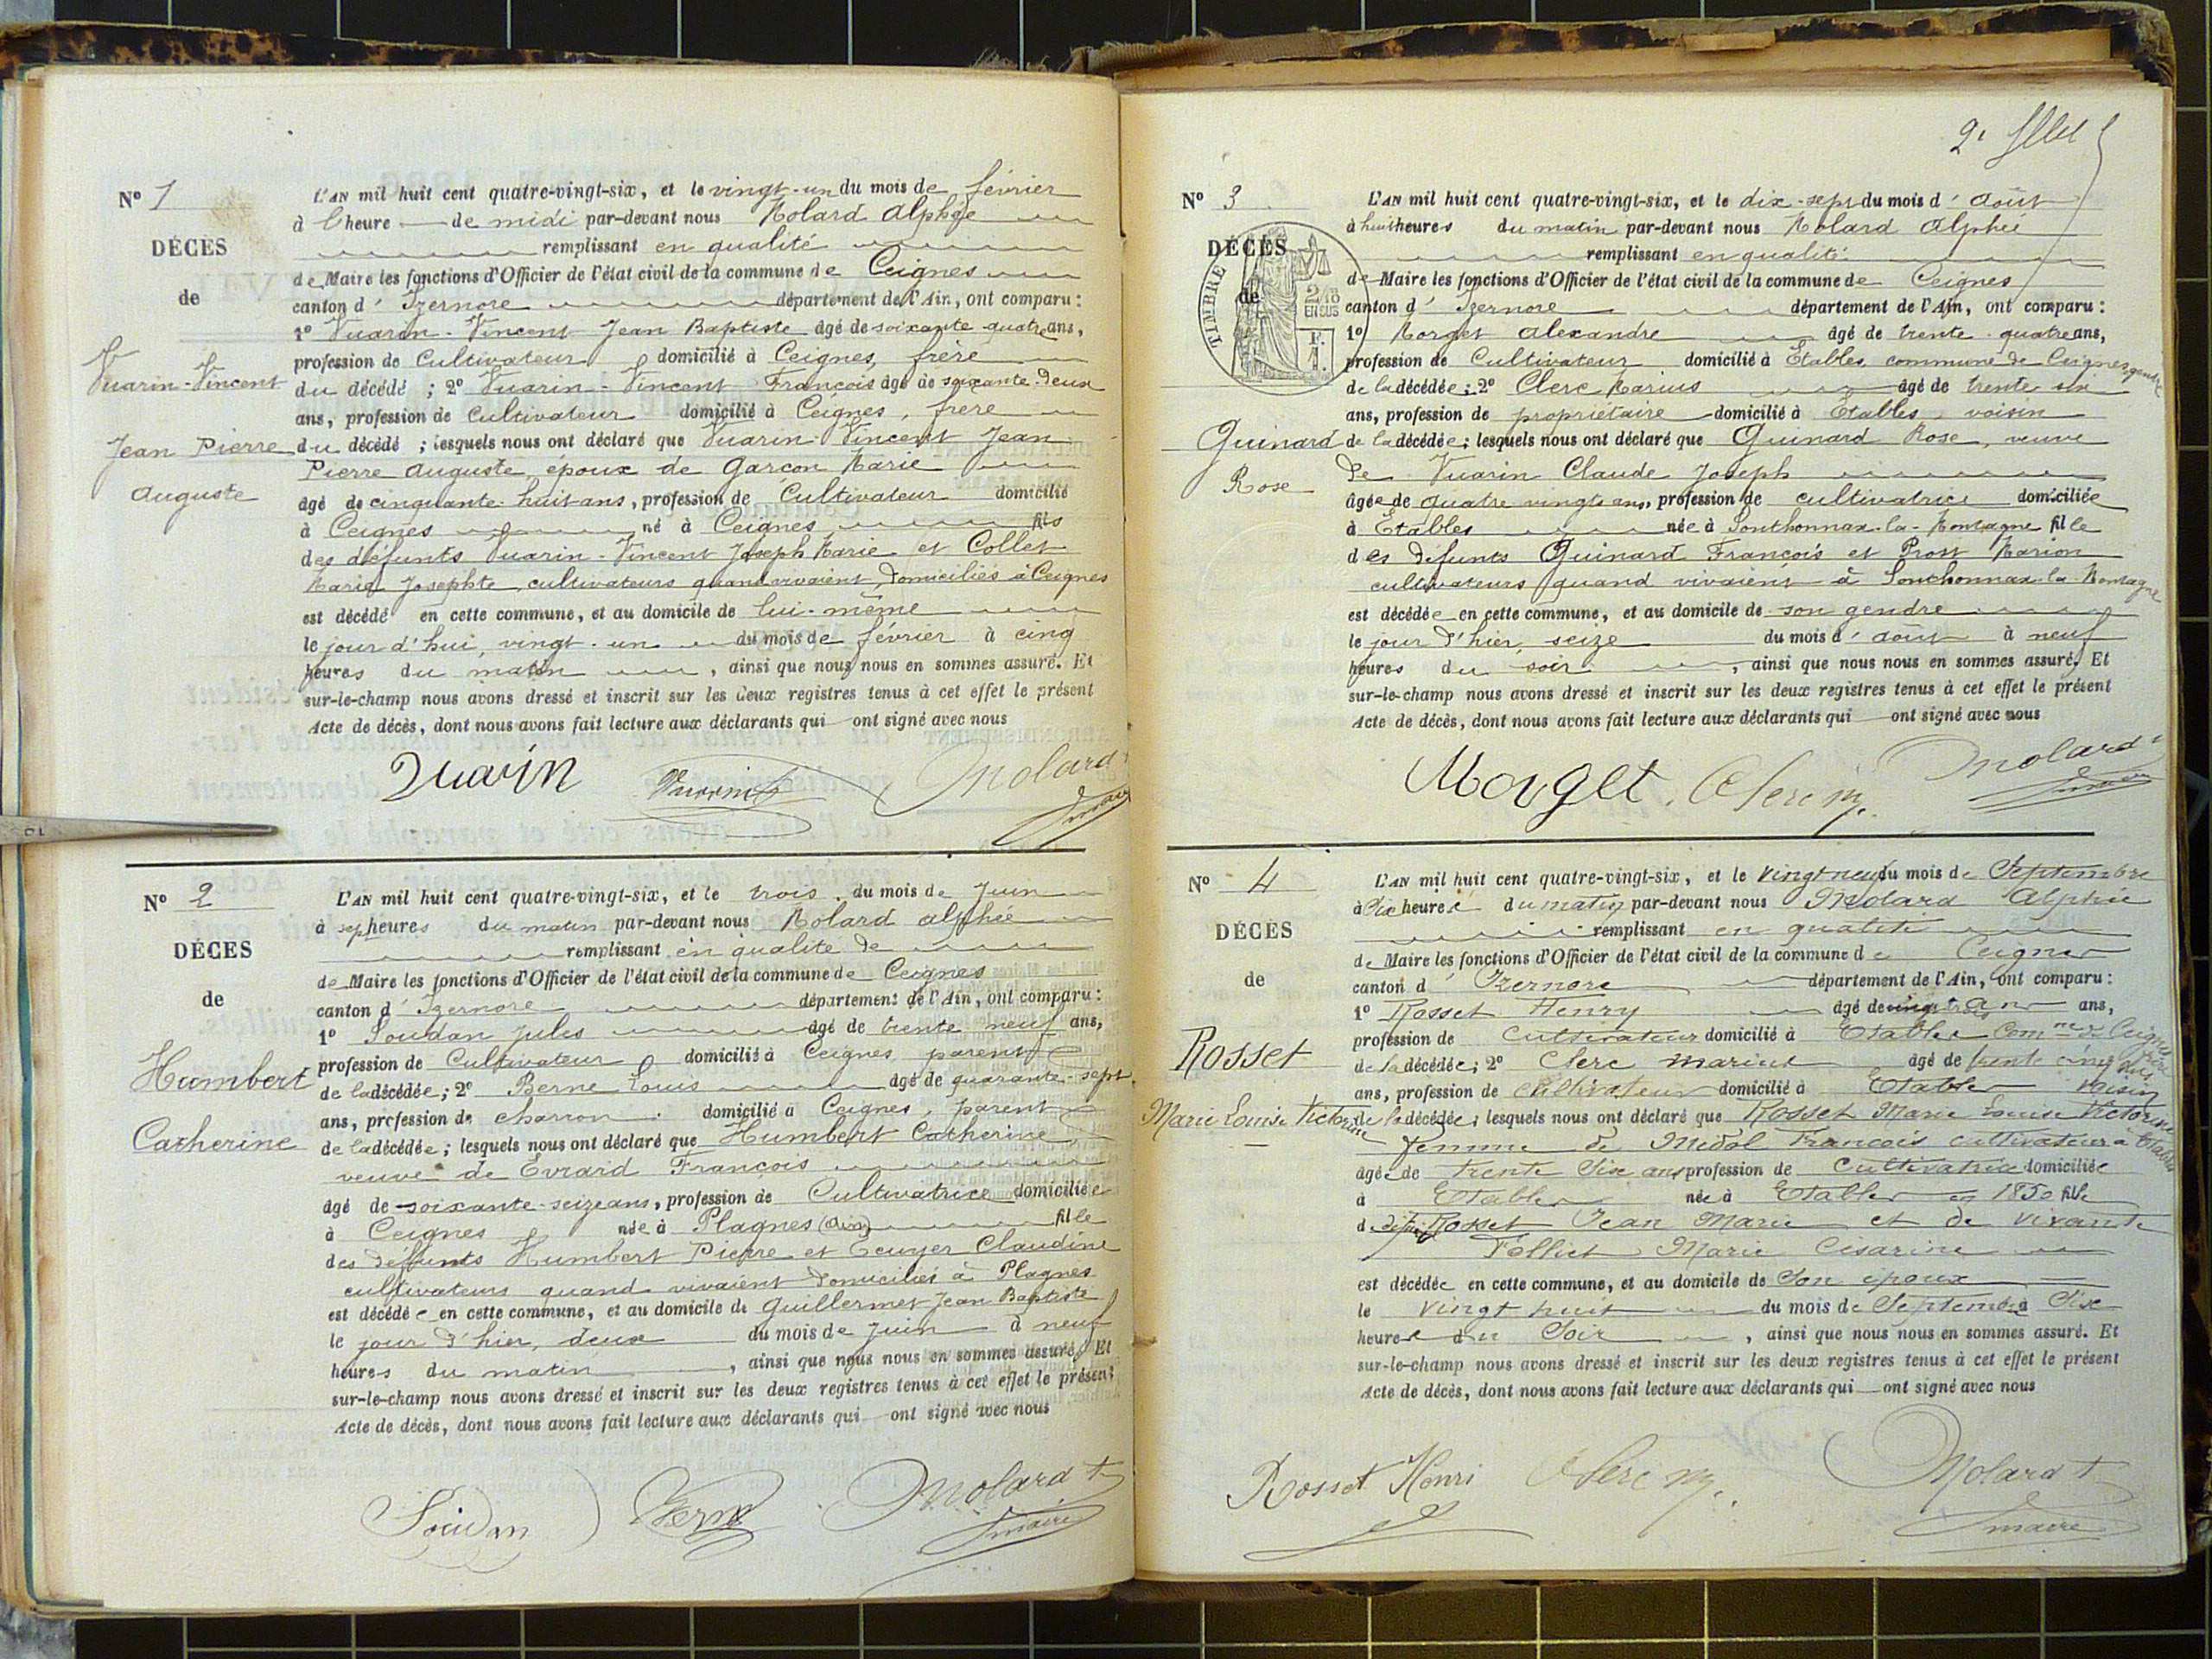 Nº 1
DÉCÈS
de
Vuarin-Vincent
Jean Pierre
Auguste
L'AN mil huit cent quatre-vingt-six, et le vingt-un du mois de février
à l'heure de midi par-devant nous Molard Alphée
remplissant en qualité
de Maire les fonctions d'Officier de l'état civil de la commune de Ceignes
canton d'Izernore département de l'Ain, ont comparu :
1º Vuarin-Vincent Jean Baptiste âgé de soixante-quatre ans,
profession de Cultivateur domicilié à Ceignes, frère
du décédé ; 2º Vuarin-Vincent François âgé de soixante-deux
ans, profession de Cultivateur domicilié à Ceignes, frère
du décédé ; lesquels nous ont déclaré que Vuarin Vincent Jean
Pierre Auguste, époux de Garçon Marie
âgé de cinquante-huit ans, profession de Cultivateur domicilié
à Ceignes né à Ceignes fils
des défunts Vuarin-Vincent Joseph Marie et Collet
Marie Josephte, cultivateurs quand vivaient, domiciliés à Ceignes
est décédé en cette commune, et au domicile de lui-même
le jour d'hui, vingt-un du mois de février à cinq
heures du matin, ainsi que nous nous en sommes assuré. Et
sur-le-champ nous avons dressé et inscrit sur les deux registres tenus à cet effet le présent
Acte de décès, dont nous avons fait lecture aux déclarants qui ont signé avec nous
Vuarin Vuarin Molard
maire
Nº 2
DÉCES
de
Humbert
Catherine
L'AN mil huit cent quatre-vingt-six, et le trois du mois de Juin
à sept heures du matin par-devant nous Molard Alphée
remplissant en qualité de
de Maire les fonctions d'Officier de l'état civil de la commune de Ceignes
canton d'Izernore département de l'Ain, ont comparu :
1º Soudan Jules âgé de trente neuf ans,
profession de Cultivateur domicilié à Ceignes parent
de la décédée ; 2º Berne Louis âgé de quarante-sept
ans, profession de charron domicilié à Ceignes, parent
de la décédée ; lesquels nous ont déclaré que Humbert Catherine
veuve de Evrard François
âgé de soixante-seize ans, profession de Cultivatrice domiciliée
à Ceignes née à Plagnes (Ain) fille
des défunts Humbert Pierre et Ecuyer Claudine
cultivateurs quand vivaient domiciliés à Plagnes
est décédée en cette commune, et au domicile de Guillermet Jean Baptiste
le jour d'hier, deux du mois de Juin à neuf
heures du matin, ainsi que nous nous en sommes assuré. Et
sur-le-champ nous avons dressé et inscrit sur les deux registres tenus à cet effet le présent
Acte de décès, dont nous avons fait lecture aux déclarants qui ont signé avec nous
Soudan Berne Molard
maire
Nº 3
DÉCÈS
de
TIMBRE
EN SUS
F.
1.
Guinard
Rose
L'AN mil huit cent quatre-vingt-six, et le dix-sept du mois d'Août
à huit heures du matin par-devant nous Molard Alphée
remplissant en qualité
de Maire les fonctions d'Officier de l'état civil de la commune de Ceignes
canton d'Izernore département de l'Ain, ont comparu :
1º Morget Alexandre âgé de trente-quatre ans,
profession de Cultivateur domicilié à Étables, commune de Ceignes gendre
de la décédée ; 2º Clerc Marius âgé de trente six
ans, profession de propriétaire domicilié à Étables voisin
de la décédée ; lesquels nous ont déclaré que Guinard Rose, veuve
de Vuarin Claude Joseph
âgée de quatre vingts ans, profession de cultivatrice domiciliée
à Étables née à Sonthonnax-la-Montagne fille
des défunts Guinard François et Prost Marion
cultivateurs quand vivaient à Sonthonnax-la-Montagne
est décédée en cette commune, et au domicile de son gendre
le jour d'hier, seize du mois d'août à neuf
heures du soir, ainsi que nous nous en sommes assuré. Et
sur-le-champ nous avons dressé et inscrit sur les deux registres tenus à cet effet le présent
Acte de décès, dont nous avons fait lecture aux déclarants qui ont signé avec nous
Morget Clerc m. Molard
maire
Nº 4
DÉCÈS
de
Rosset
Marie Louise Victorine
L'AN mil huit cent quatre-vingt-six, et le vingt neuf du mois de Septembre
à dix heures du matin par-devant nous Molard Alphée
remplissant en qualité
de Maire les fonctions d'Officier de l'état civil de la commune de Ceignes
canton d'Izernore département de l'Ain, ont comparu :
1º Rosset Henry âgé de ans,
profession de Cultivateur domicilié à Etables Comne de Ceignes frère
de la décédée ; 2º Clerc Marius âgé de trente cinq
ans, profession de Cultivateur domicilié à Etables voisin
de la décédée ; lesquels nous ont déclaré que Rosset Marie Louise Victorine
femme de Médol François cultivateur à Etables
âgée de trente six ans profession de Cultivatrice domiciliée
à Etables née à Etables en 1850 fille
de défunt Rosset Jean Marie et de vivante
Folliet Marie Césarine
est décédée en cette commune, et au domicile de Son époux
le vingt huit du mois de Septembre à Six
heures du Soir, ainsi que nous nous en sommes assuré. Et
sur-le-champ nous avons dressé et inscrit sur les deux registres tenus à cet effet le présent
Acte de décès, dont nous avons fait lecture aux déclarants qui ont signé avec nous
Rosset Henri Clerc m. Molard
maire